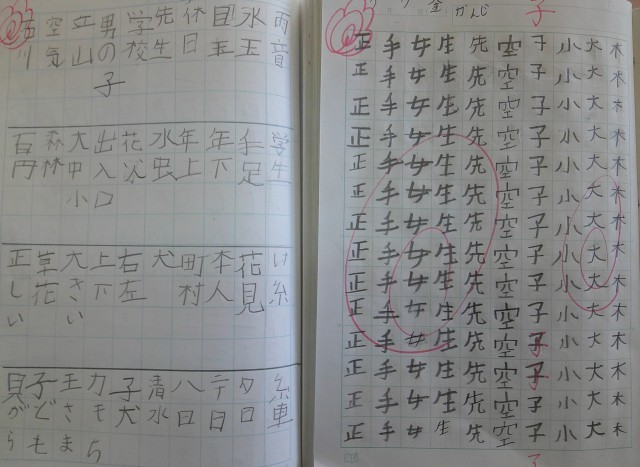 金 かんじ
子
木木木木木木木木木木木木木木
大大大大大大大大大大大大大大
小小小小小小小小小小小小小小
子子子子子子子子子子子子子子
空空空空空空空空空空空空空空
先先先先先先先先先先先先先先
生生生生生生生生生生生生生生
女女女女女女女女女女女女女女
手手手手手手手手手手手手手手
正正正正正正正正正正正正正正
子
雨音
水玉
目玉
休日
先生
学校
男の子
立山
空気
石川
学生
手足
年下
年上
水虫
花火
出入口
大中小
森林
百円
け糸
花見
本人
町村
犬
右左
上下
大きい
草花
正しい
糸車
夕日
八日
清水
子犬
力もち
王さま
子ども
貝がら